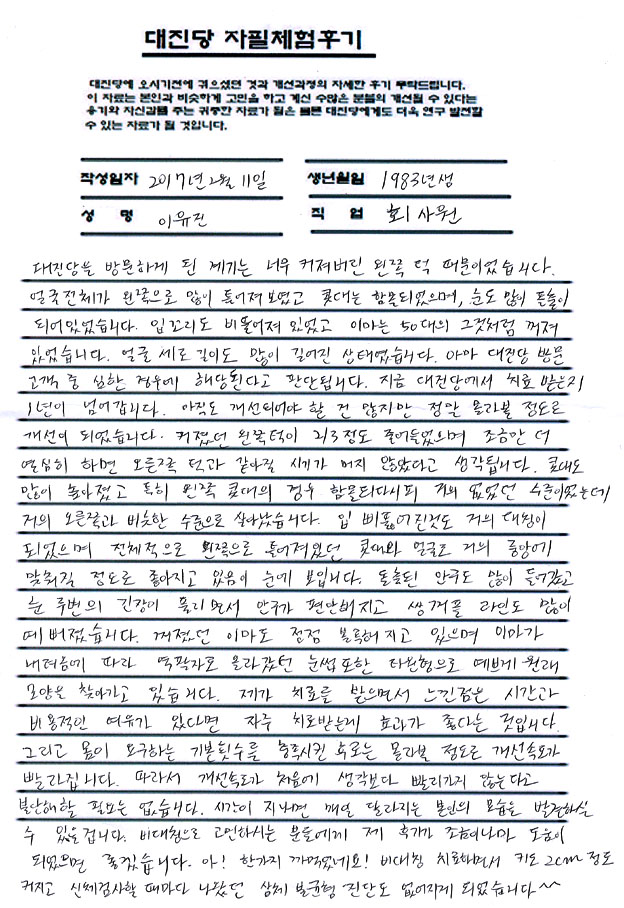 대진당 자필체험후기
대진당에 오시기전에 겪으셨던 것과 개선과정의 자세한 후기 부탁드립니다.
이 자료는 본인과 비슷하게 고민을 하고 계신 수많은 분들의 개선될 수 있다는
용기와 자신감을 주는 귀중한 자료가 됨은 물론 대진당에게도 더욱 연구 발전할
수 있는 자료가 될 것입니다.
작성일자 2017년 2월 11일 생년월일 1983년생
성 명 이유진 직 업 회사원
대진당을 방문하게 된 계기는 너무 커져버린 왼쪽 턱 때문이었습니다.
얼굴전체가 왼쪽으로 많이 틀어져 보였고 콧대는 함몰되었으며, 눈도 많이 돌출이
되어있었습니다. 입꼬리도 비뚤어져 있었고 이마는 50대의 그것처럼 꺼져
있었습니다. 얼굴 세로 길이도 많이 길어진 상태였습니다. 아마 대진당 방문
고객 중 심한 경우에 해당된다고 판단됩니다. 지금 대진당에서 치료 받는지
1년이 넘어갑니다. 아직도 개선되어야 할 건 많지만 정말 몰라볼 정도로
개선이 되었습니다. 커졌던 왼쪽턱이 2/3정도 줄어들었으며 조금만 더
열심히 하면 오른쪽 턱과 같아질 시기가 머지 않았다고 생각됩니다. 콧대도
많이 높아졌고 특히 왼쪽 콧대의 경우 함몰되다시피 거의 없었던 수준이었는데
거의 오른쪽과 비슷한 수준으로 살아났습니다. 입 삐뚤어진것도 거의 대칭이
되었으며 전체적으로 왼쪽으로 틀어져있던 콧대와 얼굴도 거의 중앙에
맞춰질 정도로 좋아지고 있음이 눈에 보입니다. 돌출된 안구도 많이 들어갔고
눈 주변의 긴장이 풀리면서 안구가 편안해지고 쌍꺼풀 라인도 많이
예뻐졌습니다. 꺼졌던 이마도 점점 볼록해지고 있으며 이마가
내려옴에 따라 역팔자로 올라갔던 눈썹 또한 타원형으로 예쁘게 원래
모양을 찾아가고 있습니다. 제가 치료를 받으면서 느낀점은 시간과
비용적인 여유가 있다면 자주 치료받는게 효과가 좋다는 것입니다.
그리고 몸이 요구하는 기본횟수를 충족시킨 후로는 몰라볼 정도로 개선속도가
빨라집니다. 따라서 개선속도가 처음에 생각보다 빨리가지 않는다고
불안해할 필요는 없습니다. 시간이 지나면 매일 달라지는 본인의 모습을 발견하실
수 있을겁니다. 비대칭으로 고민하시는 분들에게 제 후기가 조금이나마 도움이
되었으면 좋겠습니다. 아! 한가지 까먹었네요! 비대칭 치료하면서 키도 2cm 정도
커지고 신체검사할 때마다 나왔던 상체 불균형 진단도 없어지게 되었습니다^^